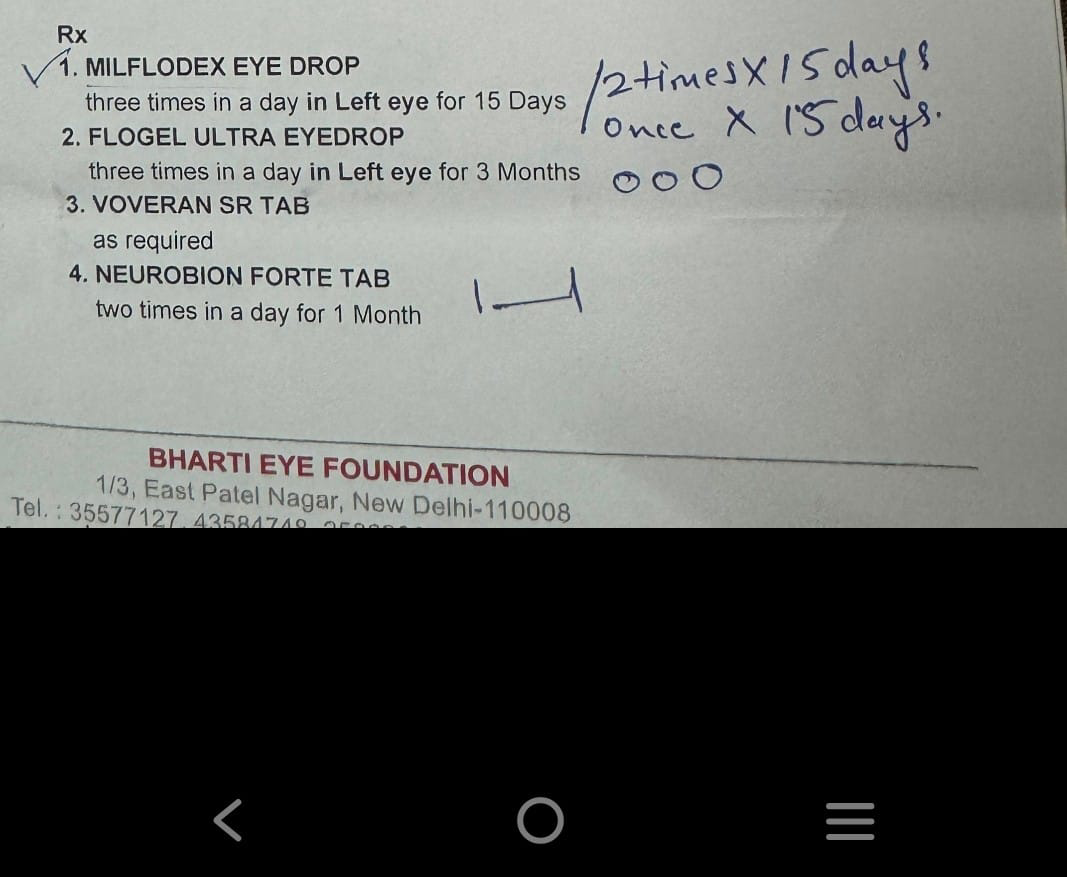 Rx
1. MILFLODEX EYE DROP
three times in a day in Left eye for 15 Days
/2 times X 15 days
once X 15 days.
2. FLOGEL ULTRA EYEDROP
three times in a day in Left eye for 3 Months
3. VOVERAN SR TAB
as required
4. NEUROBION FORTE TAB
two times in a day for 1 Month
BHARTI EYE FOUNDATION
1/3, East Patel Nagar, New Delhi-110008
Tel. : 35577127, 43584748